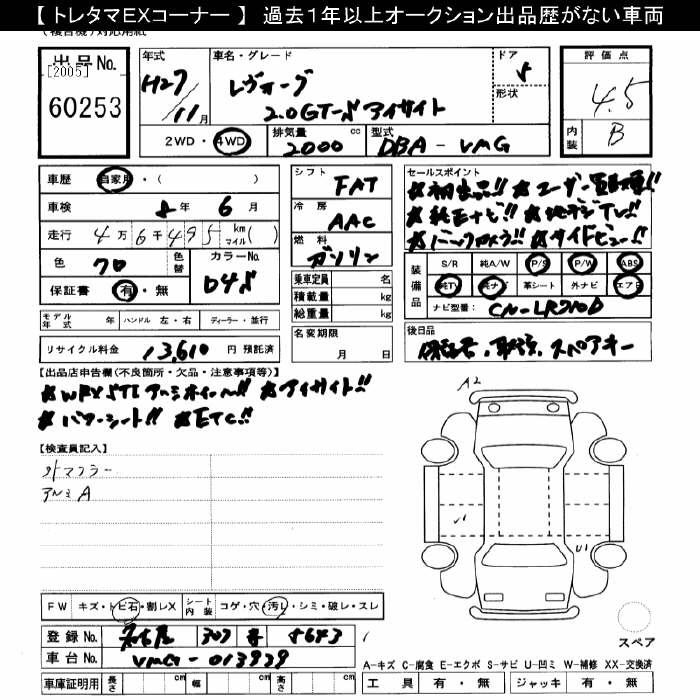 【 トレタマEXコーナー 】 過去1年以上オークション出品歴がない車両
出品No. [2005]
60253
年式 H27/11月
車名・グレード レヴォーグ
2.0GT-S アイサイト
ドア 5
形状
2WD・4WD
排気量 2000 cc
型式 DBA - VMG
評価点 4.5
内装 B
車歴 自家用・( )
車検 8年 6月
走行 4万6千495 km マイル( )
色 クロ 色替
カラーNo. D4S
保証書 有・無
モデル年式 年 ハンドル 左・右 ディーラー・並行
リサイクル料金 13,610 円 預託済
シフト FAT
冷房 AAC
燃料 ガソリン
乗車定員 名
積載量 kg
総重量 kg
名変期限 月 日
セールスポイント
★初出品!! ★ユーザー買取車!!
★純正ナビ!! ★地デジTV!!
★バックカメラ!! ★サイドビュー!!
装備品 S/R 純A/W P/S P/W ABS
純TV 純ナビ 革シート 外ナビ エアB
ナビ型番:
後日品
保証書、取説、スペアキー
【出品店申告欄(不良箇所・欠品・注意事項等)】
★WRX STI アルミホイール!! ★アイサイト!!
★パワーシート!! ★ETC!!
【検査員記入】
外マフラー
アルミ A
FW キズ・トビ石・割レX シート内装 コゲ・穴・汚レ・シミ・破レ・スレ
登録No. 名古屋 307
車台No. VMG - 013939
車庫証明用 長さ cm 幅 cm 高さ cm
A2
U1
スペア
A-キズ C-腐食 E-エクボ S-サビ U-凹ミ W-補修 XX-交換済
工具 有・無 ジャッキ 有・無